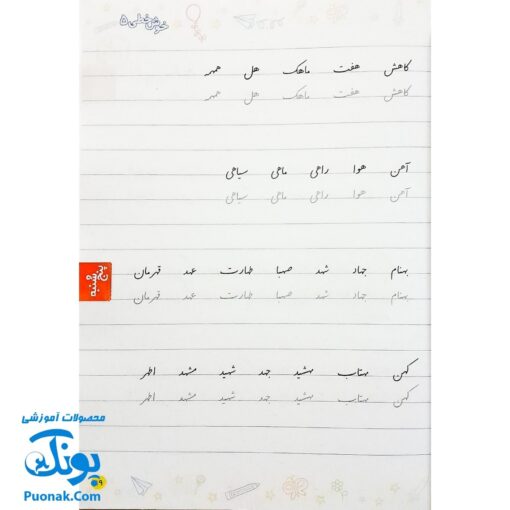 خوش خطی ۵
کاهش هفت ماهک هل
کاهش هفت ماهک هل
آهن هوا راهی ماهی سیاهی
آهن هوا راهی ماهی سیاهی
بهنام جهاد شهد صهبا طهارت عهد قهرمان
بهنام جهاد شهد صهبا طهارت عهد قهرمان
پنج شنبه
کهن مهتاب مهشید جهد شهید مشهد اطهر
کهن مهتاب مهشید جهد شهید مشهد اطهر
محصولات آموزشی
پونک
Puonak.Com
۹